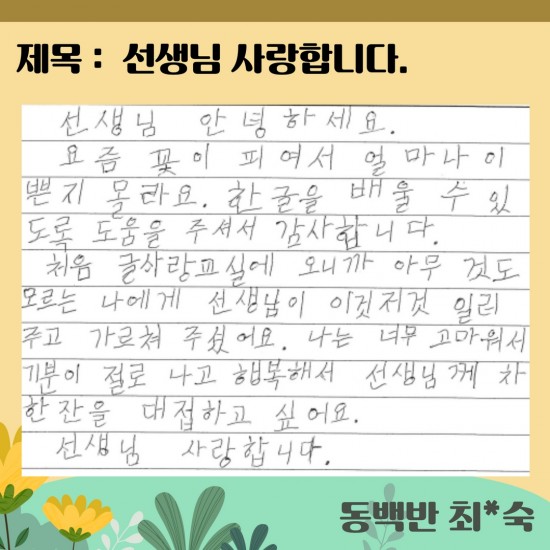 제목 : 선생님 사랑합니다.
선생님 안녕하세요.
요즘 꽃이 피여서 얼마나 이
쁜지 몰라요. 한글을 배울 수 있
도록 도움을 주셔서 감사합니다.
처음 글사랑교실에 오니까 아무 것도
모르는 나에게 선생님이 이것저것 일리
주고 가르쳐 주셨어요. 나는 너무 고마워서
기분이 절로 나고 행복해서 선생님께 차
한잔을 대접하고 싶어요.
선생님 사랑합니다.
동백반 최*숙